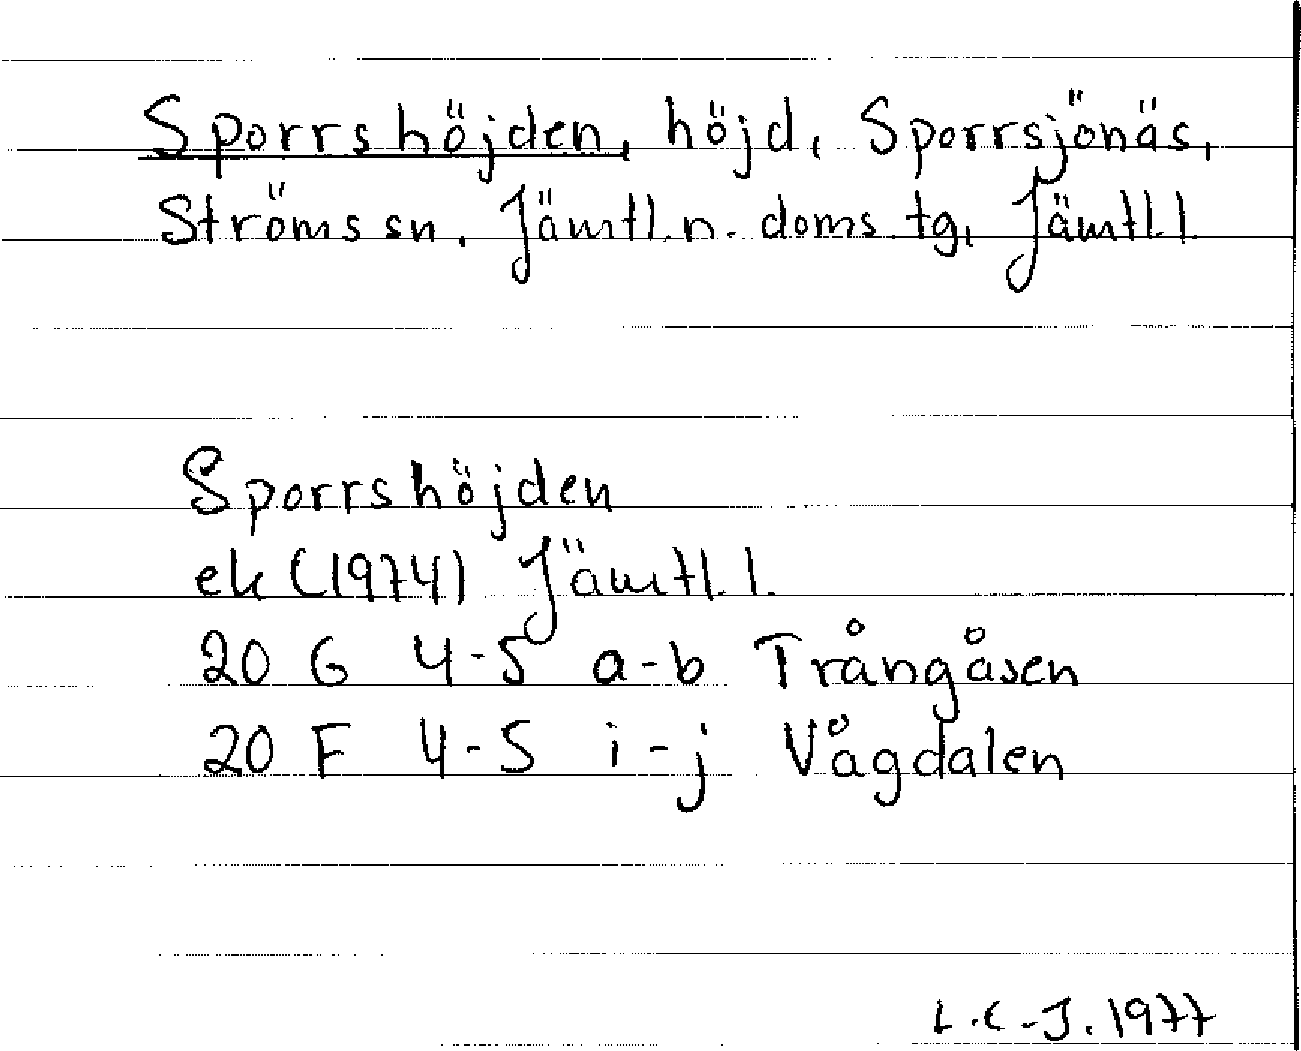 Sporrshöjden, höjd, Sporrsjönäs,
Ströms sn, Jämtl. n. doms. tg, Jämtl. l.
Sporrshöjden
ek (1974) Jämtl. l.
20 G 4-5 a-b Trångåsen
20 F 4-5 i-j Vågdalen
L.C-J. 1977